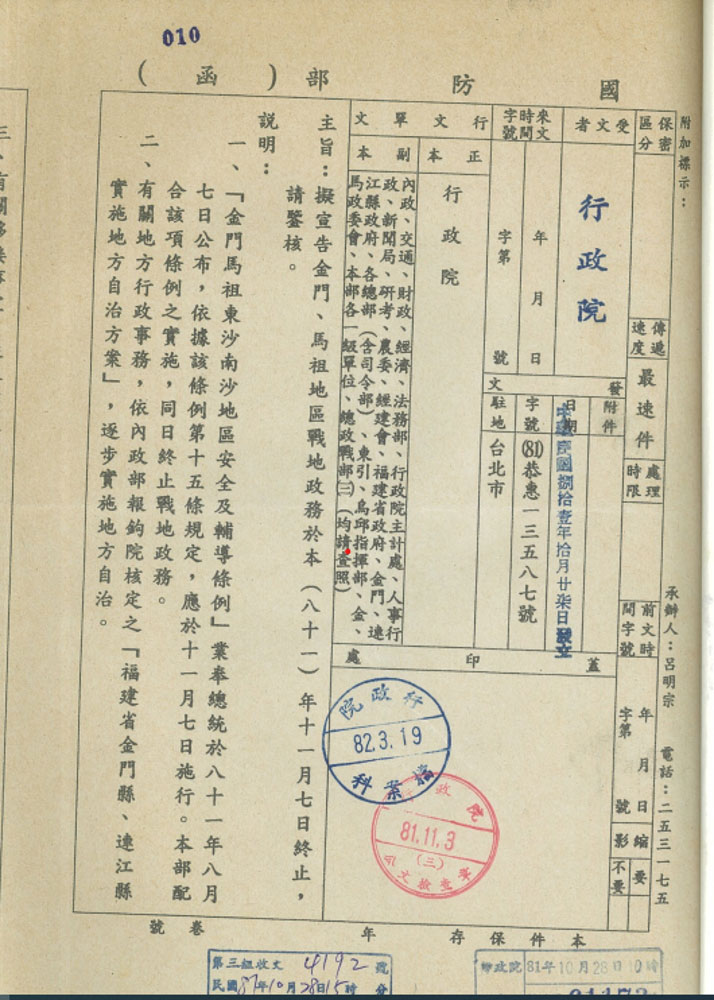 010
國防部（函）
附加標示：
保密區分
受文者
行政院
來文時間字號
年 月 日
字第 號
行文單文
正本
行政院
副本
內政、交通、財政、經濟、法務部、行政院主計處、人事行
政、新聞局、研考、農委、經建會、福建省政府、金門、連
江縣政府、各總部（含司令部）、東引、烏邱指揮部、金、
馬政委會、本部各一級單位、總政戰部㈢（均請查照）
傳遞速度
最速件
處理時限
前文時間字號
年 月 日
字第 號
縮影
要
不要
承辦人：呂明宗 電話：二五三一七五
發文
附件
日期
中華民國捌拾壹年拾月廿柒日發立
字號
(81)恭惠一三五八七號
駐地
台北市
蓋印處
行政院
82.3.19
檔案科
81.11.3
（三）
主旨：擬宣告金門、馬祖地區戰地政務於本（八十一）年十一月七日終止，
請鑒核。
說明：
一、「金門馬祖東沙南沙地區安全及輔導條例」業奉總統於八十一年八月
七日公布，依據該條例第十五條規定，應於十一月七日施行。本部配
合該項條例之實施，同日終止戰地政務。
二、有關地方行政事務，依內政部報鈞院核定之「福建省金門縣、連江縣
實施地方自治方案」，逐步實施地方自治。
本件保存 年 卷 號
第三組收文 4192 號
民國81年10月28日15時 分
行政院 81年10月28日10時